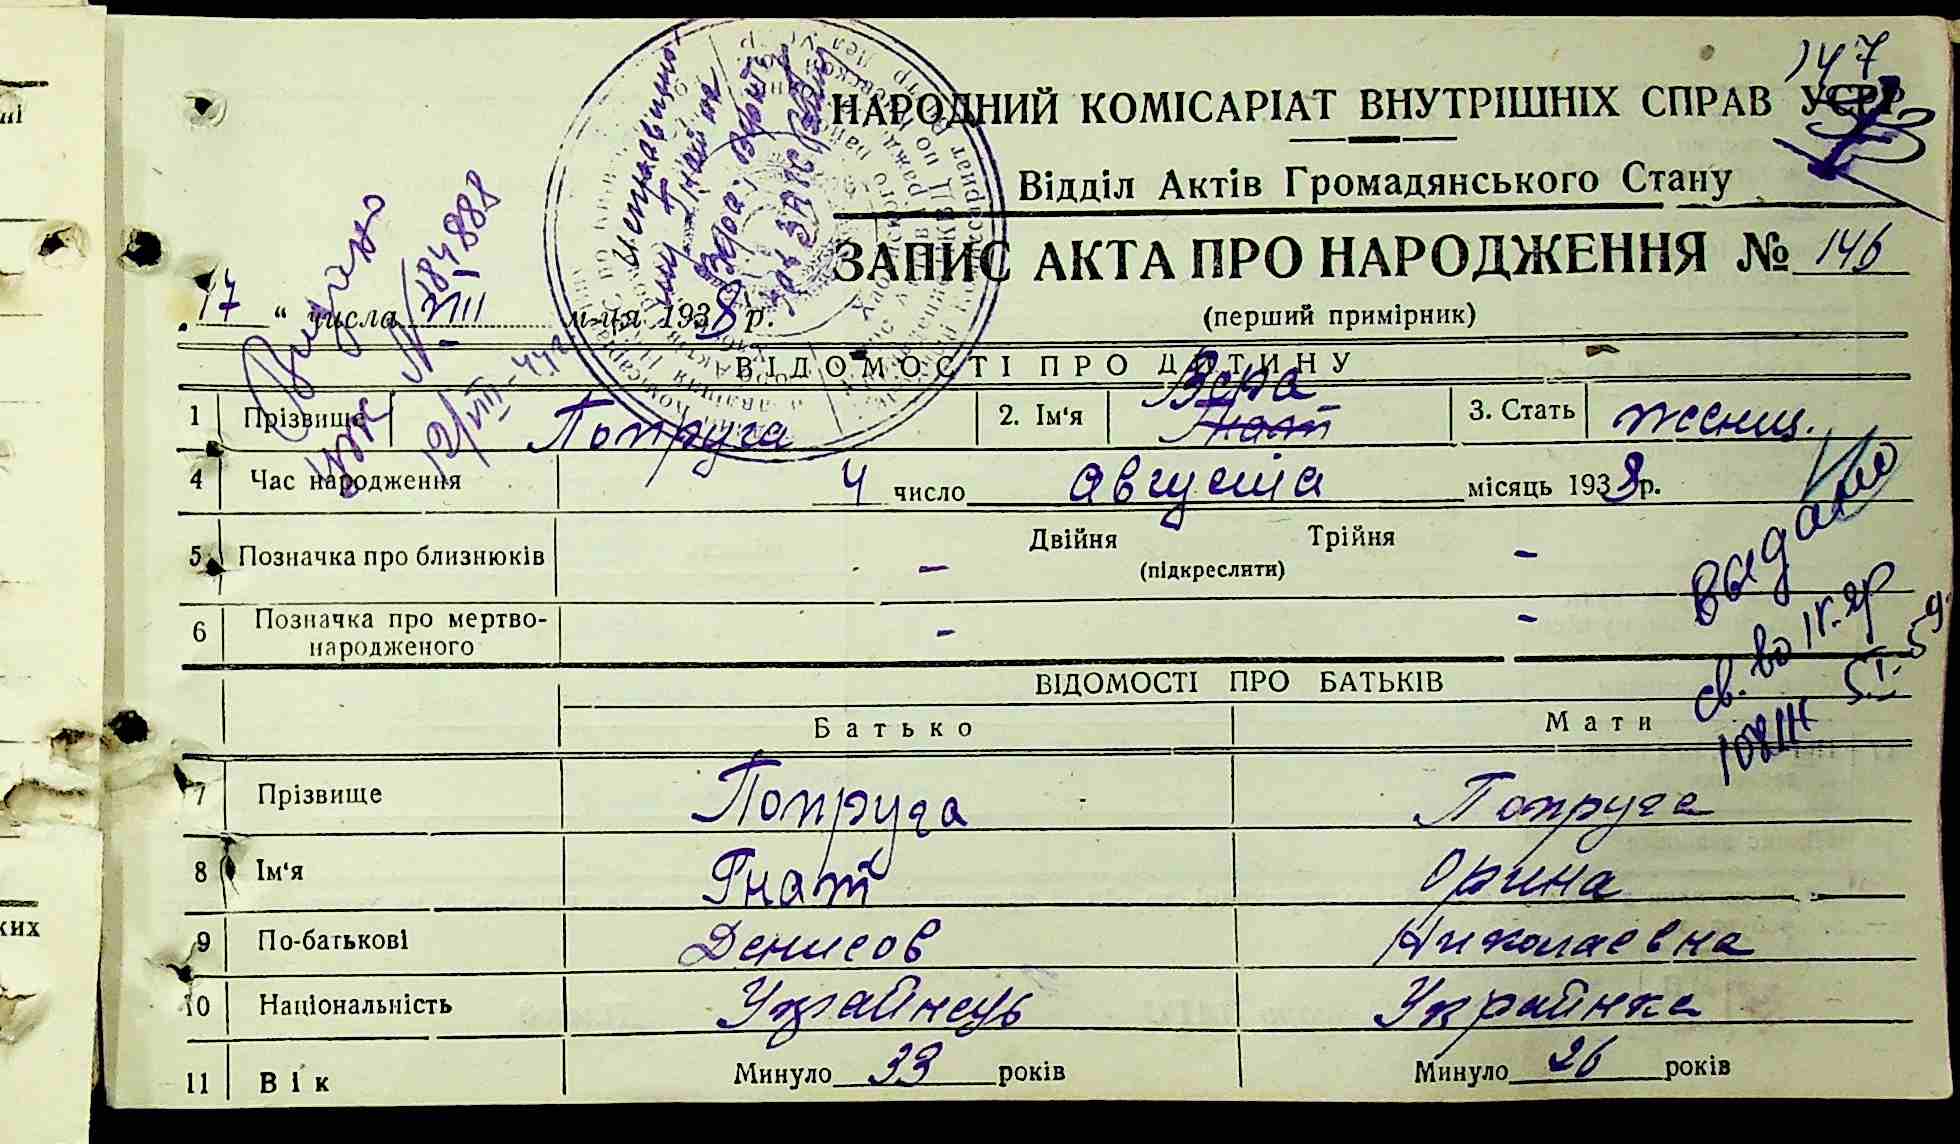 147
НАРОДНИЙ КОМІСАРІАТ ВНУТРІШНІХ СПРАВ УСРР
Відділ Актів Громадянського Стану
ЗАПИС АКТА ПРО НАРОДЖЕННЯ № 146
(перший примірник)
„17“ числа VIII м-ця 1938 р.
ВІДОМОСТІ ПРО ДИТИНУ
1 Прізвище Попруга 2. Ім'я Вера Гнат 3. Стать женщ.
4 Час народження 4 число августа місяць 1938 р.
5 Позначка про близнюків - Двійня Трійня -
(підкреслити)
6 Позначка про мертво-
народженого - -
ВІДОМОСТІ ПРО БАТЬКІВ
Батько Мати
7 Прізвище Попруга Попруга
8 Ім'я Гнат Орина
9 По-батькові Денисов Николаевна
10 Національність Українець Українка
11 Вік Минуло 33 років Минуло 26 років
выдано
св. во
5.I.59